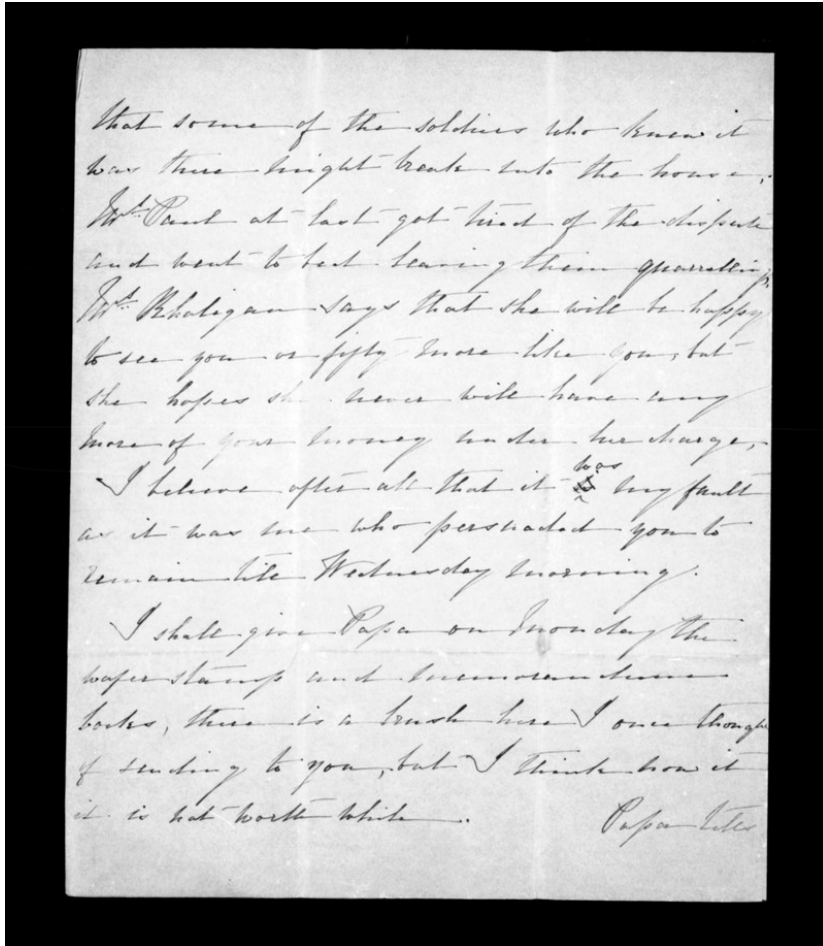 that some of the soldiers who knew it
was there might break into the house.
Mrs. Paul at last got tired of the dispute
and went to bed leaving them quarrelling.
Mrs. Rhaligan says that she will be happy
to see you or fifty more like you, but
she hopes she never will have any
more of your money under her charge,
I believe after all that it was my fault
as it was me who persuaded you to
remain till Wednesday morning.
I shall give Papa on Monday the
wafer stamp and memorandum
books, there is a brush here I once thought
of sending to you, but I think now it
it is not worth while.
Papa tells